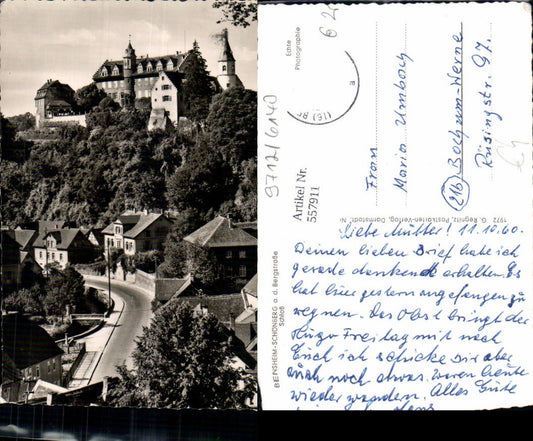 BENSHEIM-SCHÖNBERG a. d. Bergstraße
Schloß
Echte
Photographie
(16)
a
9712/6140
Artikel Nr.
557911
Frau
Maria Umbach
(21b) Bochum-Werne
Rüsingstr. 97.
1972 G. Regnitz, Postkarten-Verlag, Darmstadt Nr.
Liebe Mutter! 11.10.60.
Deinen lieben Brief habe ich
gerade dankend erhalten. Es
hat hier gestern angefangen zu
regnen. Das Obst bringt der
Hugo Freitag mit nach
Euch ich schicke Dir aber
auch noch etwas. waren heute
wieder wandern. Alles Gute